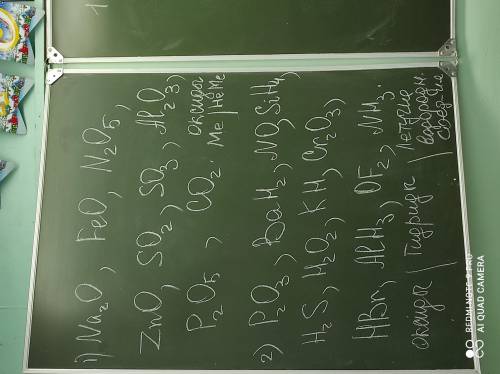 1) Na₂O, FeO, N₂O₅,
ZnO, SO₂, SO₃, Al₂O₃,
P₂O₅, CO₂. оксиды
Ме | НеМе
2) P₂O₃, BaH₂, NO, SiH₄,
H₂S, H₂O₂, KH, Cr₂O₃,
HBr, AlH₃, OF₂, NH₃.
оксиды | Гидриды | Летучие
водородн.
соед-ия
REDMI NOTE 9 PRO
AI QUAD CAMERA
1